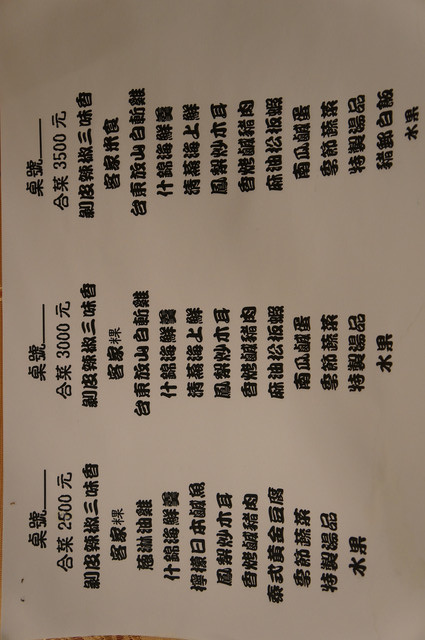 桌號____
合菜 2500 元
剝皮辣椒三味香
客家粿
蔥淋油雞
什錦海鮮羹
檸檬日本鹹魚
鳳梨炒木耳
香烤鹹豬肉
泰式黃金豆腐
季節蔬菜
特製湯品
水果
桌號____
合菜 3000 元
剝皮辣椒三味香
客家粿
台東放山白斬雞
什錦海鮮羹
清蒸海上鮮
鳳梨炒木耳
香烤鹹豬肉
麻油松板蝦
南瓜鹹蛋
季節蔬菜
特製湯品
水果
桌號____
合菜 3500 元
剝皮辣椒三味香
客家米食
台東放山白斬雞
什錦海鮮羹
清蒸海上鮮
鳳梨炒木耳
香烤鹹豬肉
麻油松板蝦
南瓜鹹蛋
季節蔬菜
特製湯品
豬郵白飯
水果